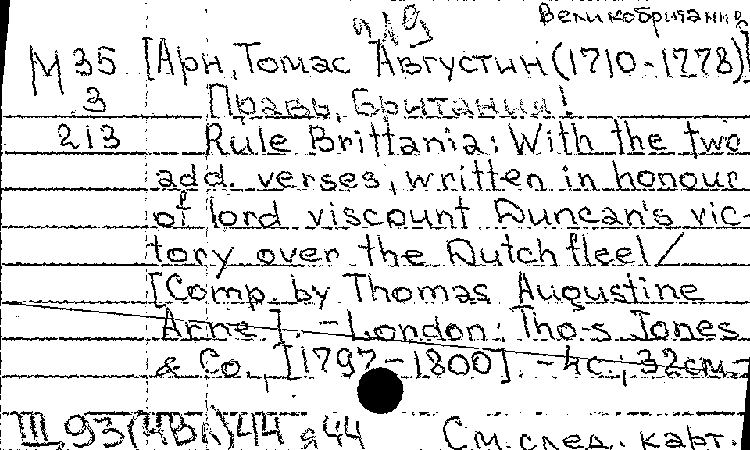 Великобритания
М 35 [Арн, Томас Августин (1710-1778)]
3 Правь, Британия!
213 Rule Brittania: With the two
add. verses, written in honour
of lord viscount Duncan's vic-
tory over the Dutch fleel /
[Comp. by Thomas Augustine
Arne]. – London: Tho-s Jones
& Co., [1797-1800]. – 4с.; 32см. –
III 93 44 я44 См. след. карт.